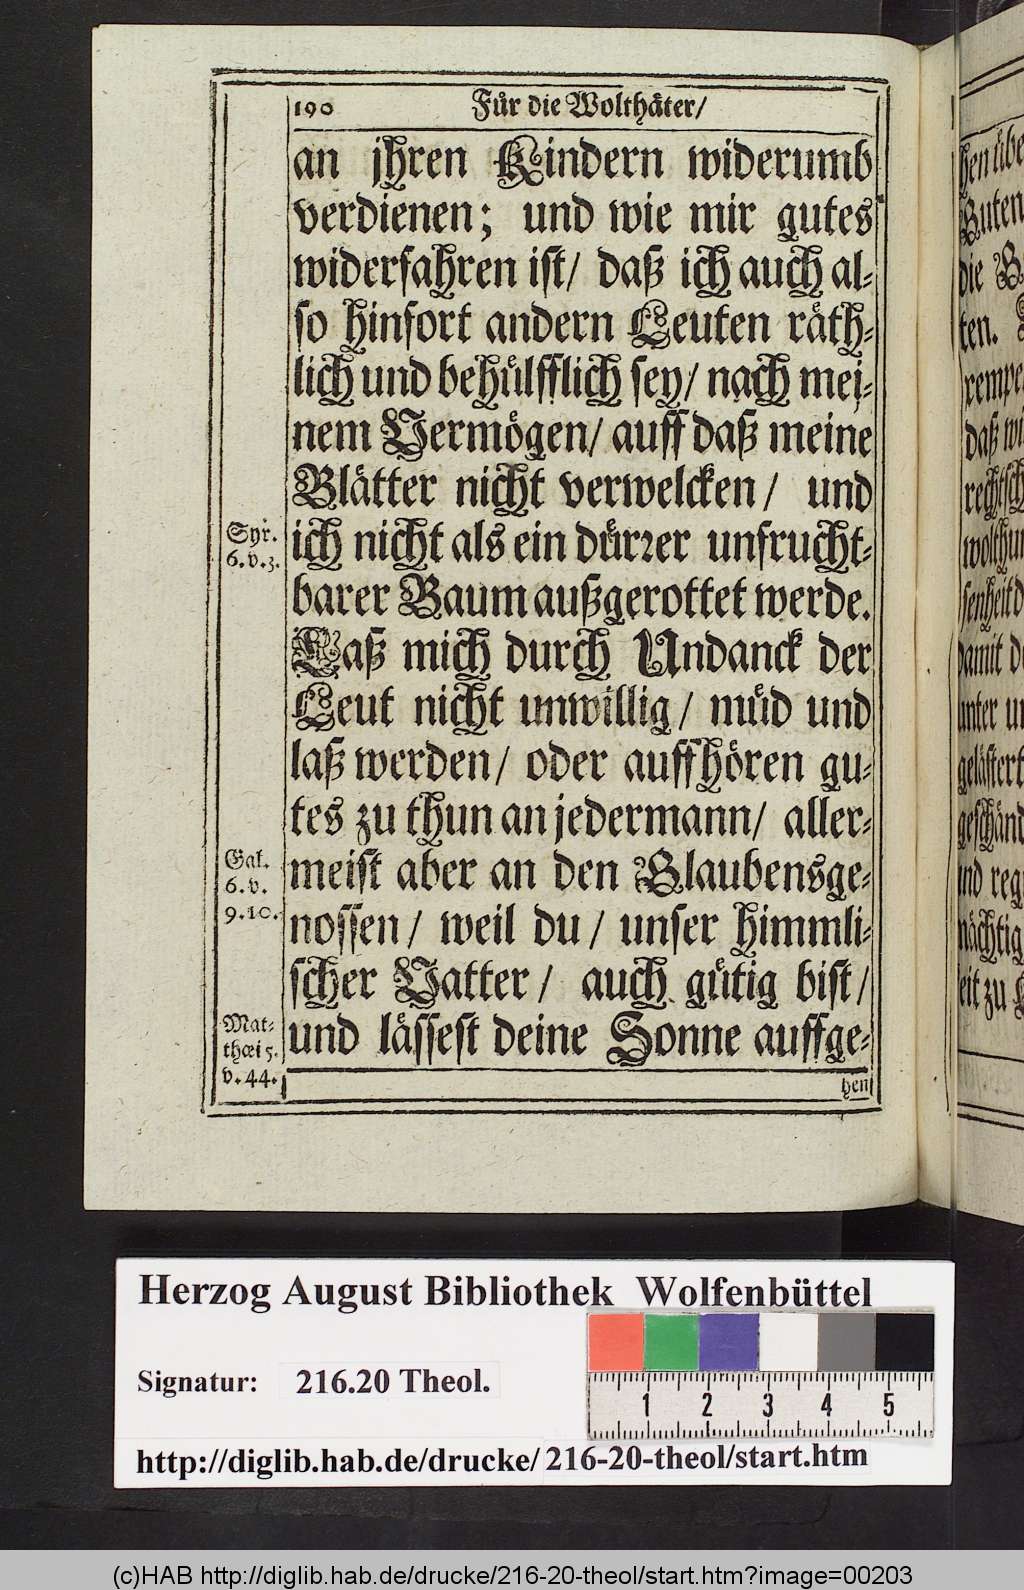 190 Fůr die Wolthäter/
an jhren Kindern widerumb
verdienen; und wie mir gutes
widerfahren ist/ daß ich auch al-
so hinfort andern Leuten räth-
lich und behůlfflich sey/ nach mei-
nem Vermögen/ auff daß meine
Blätter nicht verwelcken/ und
Syr.
6. v. 3.
ich nicht als ein důrrer unfrucht-
barer Baum außgerottet werde.
Laß mich durch Undanck der
Leut nicht unwillig/ můd und
laß werden/ oder auffhören gu-
tes zu thun an jedermann/ aller-
Gal.
6. v.
9. 10.
meist aber an den Glaubensge-
nossen/ weil du/ unser himmli-
scher Vatter/ auch gůtig bist/
Mat-
thæi 5.
v. 44.
und lässest deine Sonne auffge-
hen
Herzog August Bibliothek Wolfenbüttel
Signatur: 216.20 Theol.
1 2 3 4 5
http://diglib.hab.de/drucke/216-20-theol/start.htm
(c)HAB http://diglib.hab.de/drucke/216-20-theol/start.htm?image=00203